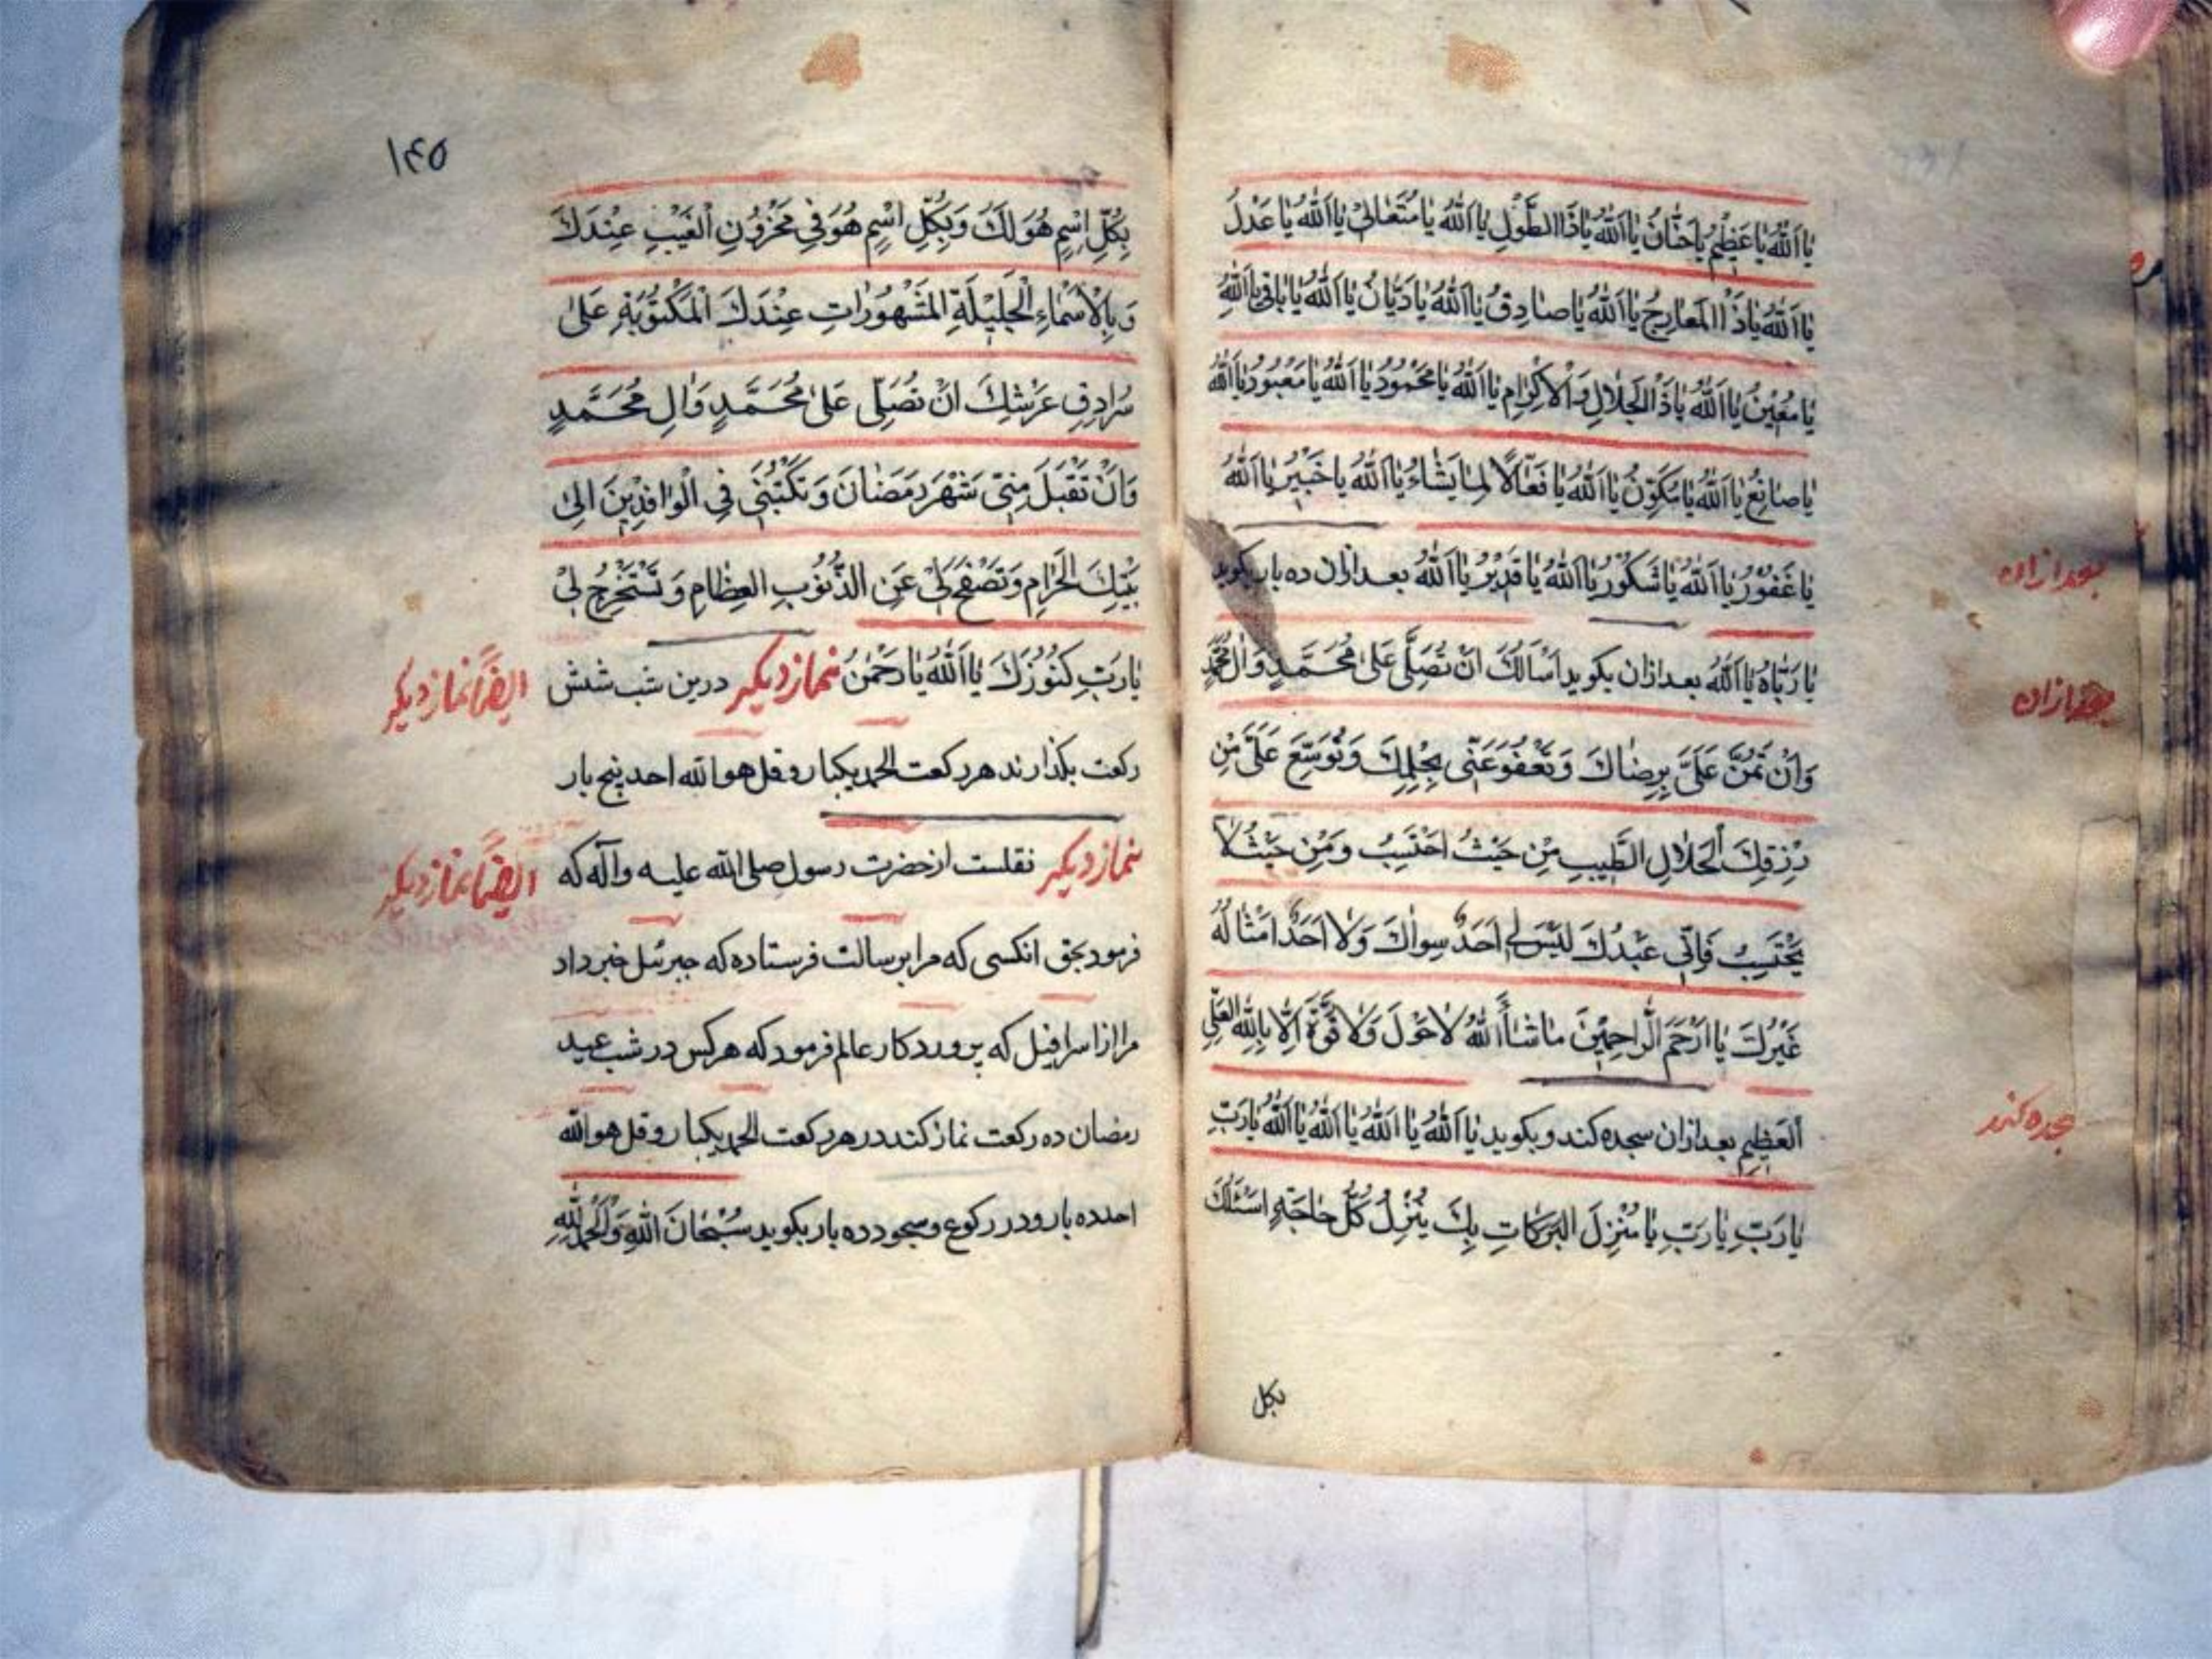 يا اَللّٰهُ يا عَظيمُ يا حَنّانُ يا اَللّٰهُ يا ذَا الطَّوْلِ يا اَللّٰهُ يا مُتَعالي يا اَللّٰهُ يا عَدْلُ
يا اَللّٰهُ يا ذَا المَعارِجِ يا اَللّٰهُ يا صادِقُ يا اَللّٰهُ يا دَيّانُ يا اَللّٰهُ يا باقي يا اَللّٰهُ
يا مُعينُ يا اَللّٰهُ يا ذَا الْجَلالِ وَالْاِكْرامِ يا اَللّٰهُ يا مَحْمُودُ يا اَللّٰهُ يا مَعْبُودُ يا اَللّٰهُ
يا صانِعُ يا اَللّٰهُ يا مُكَوِّنُ يا اَللّٰهُ يا فَعّالاً لِما يَشاءُ يا اَللّٰهُ يا خَبيرُ يا اَللّٰهُ
يا غَفُورُ يا اَللّٰهُ يا شَكُورُ يا اَللّٰهُ يا قَديرُ يا اَللّٰهُ بعد ازان ده بار بكويد
بعد ازان
يا رَبّاهُ يا اَللّٰهُ بعد ازان بكويد اَسْاَلُكَ اَنْ تُصَلِّىَ عَلى مُحَمَّدٍ وَالِ مُحَمَّدٍ
بعد ازان
وَاَنْ تَمُنَّ عَلَىَّ بِرِضاكَ وَتَعْفُوَ عَنّى بِحِلْمِكَ وَتُوَسِّعَ عَلَىَّ مِنْ
رِزْقِكَ الْحَلالِ الطَّيِّبِ مِنْ حَيْثُ اَحْتَسِبُ وَمِنْ حَيْثُ لا
يَحْتَسِبُ فَاِنّى عَبْدُكَ لَيْسَ لى اَحَدٌ سِواكَ وَلا اَحَدٌ اَمْثالُهُ
غَيْرُكَ يا اَرْحَمَ الرّاحِمينَ ما شاءَ اللّٰهُ لا حَوْلَ وَلا قُوَّةَ اِلّا بِاللّٰهِ الْعَلِىِّ
الْعَظيمِ بعد ازان سجده كند و بكويد يا اَللّٰهُ يا اَللّٰهُ يا اَللّٰهُ يا اَللّٰهُ يا رَبِّ
سجده كند
يا رَبِّ يا رَبِّ يا مُنْزِلَ البَرَكاتِ بِكَ يُنْزِلُ كُلُّ حاجَةٍ اَسْئَلُكَ
بكل
١٤٥
بِكُلِّ اِسْمٍ هُوَ لَكَ وَبِكُلِّ اسْمٍ هُوَ فى مَخْزُونِ الْغَيْبِ عِنْدَكَ
وَبِالْاَسْماءِ الْجَليلَةِ المَشْهُوراتِ عِنْدَكَ الْمَكْتُوبَةِ عَلى
سُرادِقِ عَرْشِكَ اَنْ تُصَلِّى عَلى مُحَمَّدٍ وَالِ مُحَمَّدٍ
وَاَنْ تَقْبَلَ مِنّى شَهْرَ رَمَضانَ وَتَكْتُبَنى فِى الْوافِدينَ اِلى
بَيْتِكَ الْحَرامِ وَتَصْفَحَ لى عَنِ الذُّنُوبِ العِظامِ وَتَسْتَخْرِجَ لى
يا رَبِّ كُنُوزَكَ يا اَللّٰهُ يا رَحْمٰنُ نماز ديكر درين شب شش
ايضًا نماز ديكر
ركعت بكذارند هر ركعت الحمد يكبار و قل هو الله احد پنج بار
نماز ديكر نقلست از حضرت رسول صلى الله عليه وآله كه
ايضًا نماز ديكر
فرمود بحق انكسى كه مرا برسالت فرستاده كه جبرئيل خبر داد
مرا از اسرافيل كه پروردكار عالم فرمود كه هر كس در شب عيد
رمضان ده ركعت نماز كند در هر ركعت الحمد يكبار و قل هو الله
احد ده بار و در ركوع و سجود ده بار بكويد سُبْحانَ اللّٰهِ وَالْحَمْدُ لِلّٰهِ